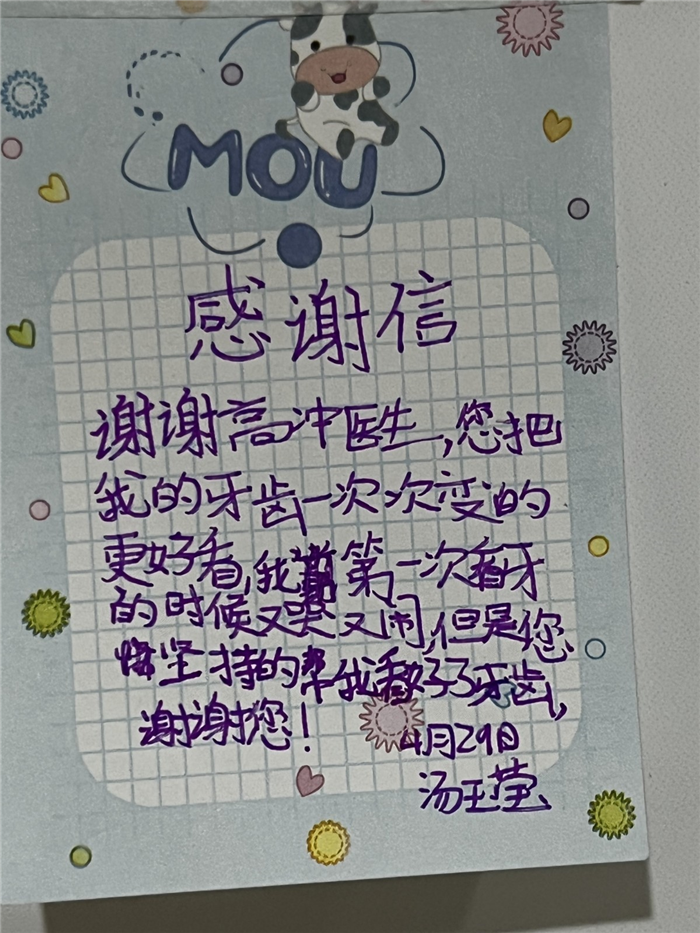 MOU
感谢信
谢谢高冲医生,您把
我的牙齿一次次变的
更好看,我第一次看牙
的时候又哭又闹,但是您
坚持的帮我看好了牙齿,
谢谢您!
4月29日
汤玉莹